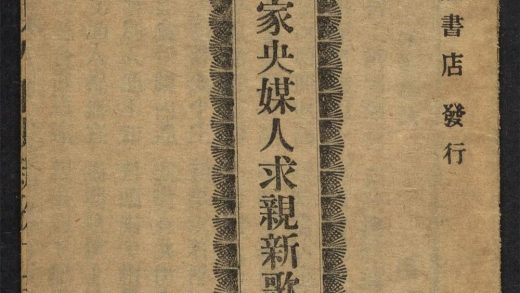 書店 發行
家央媒人求親新歌